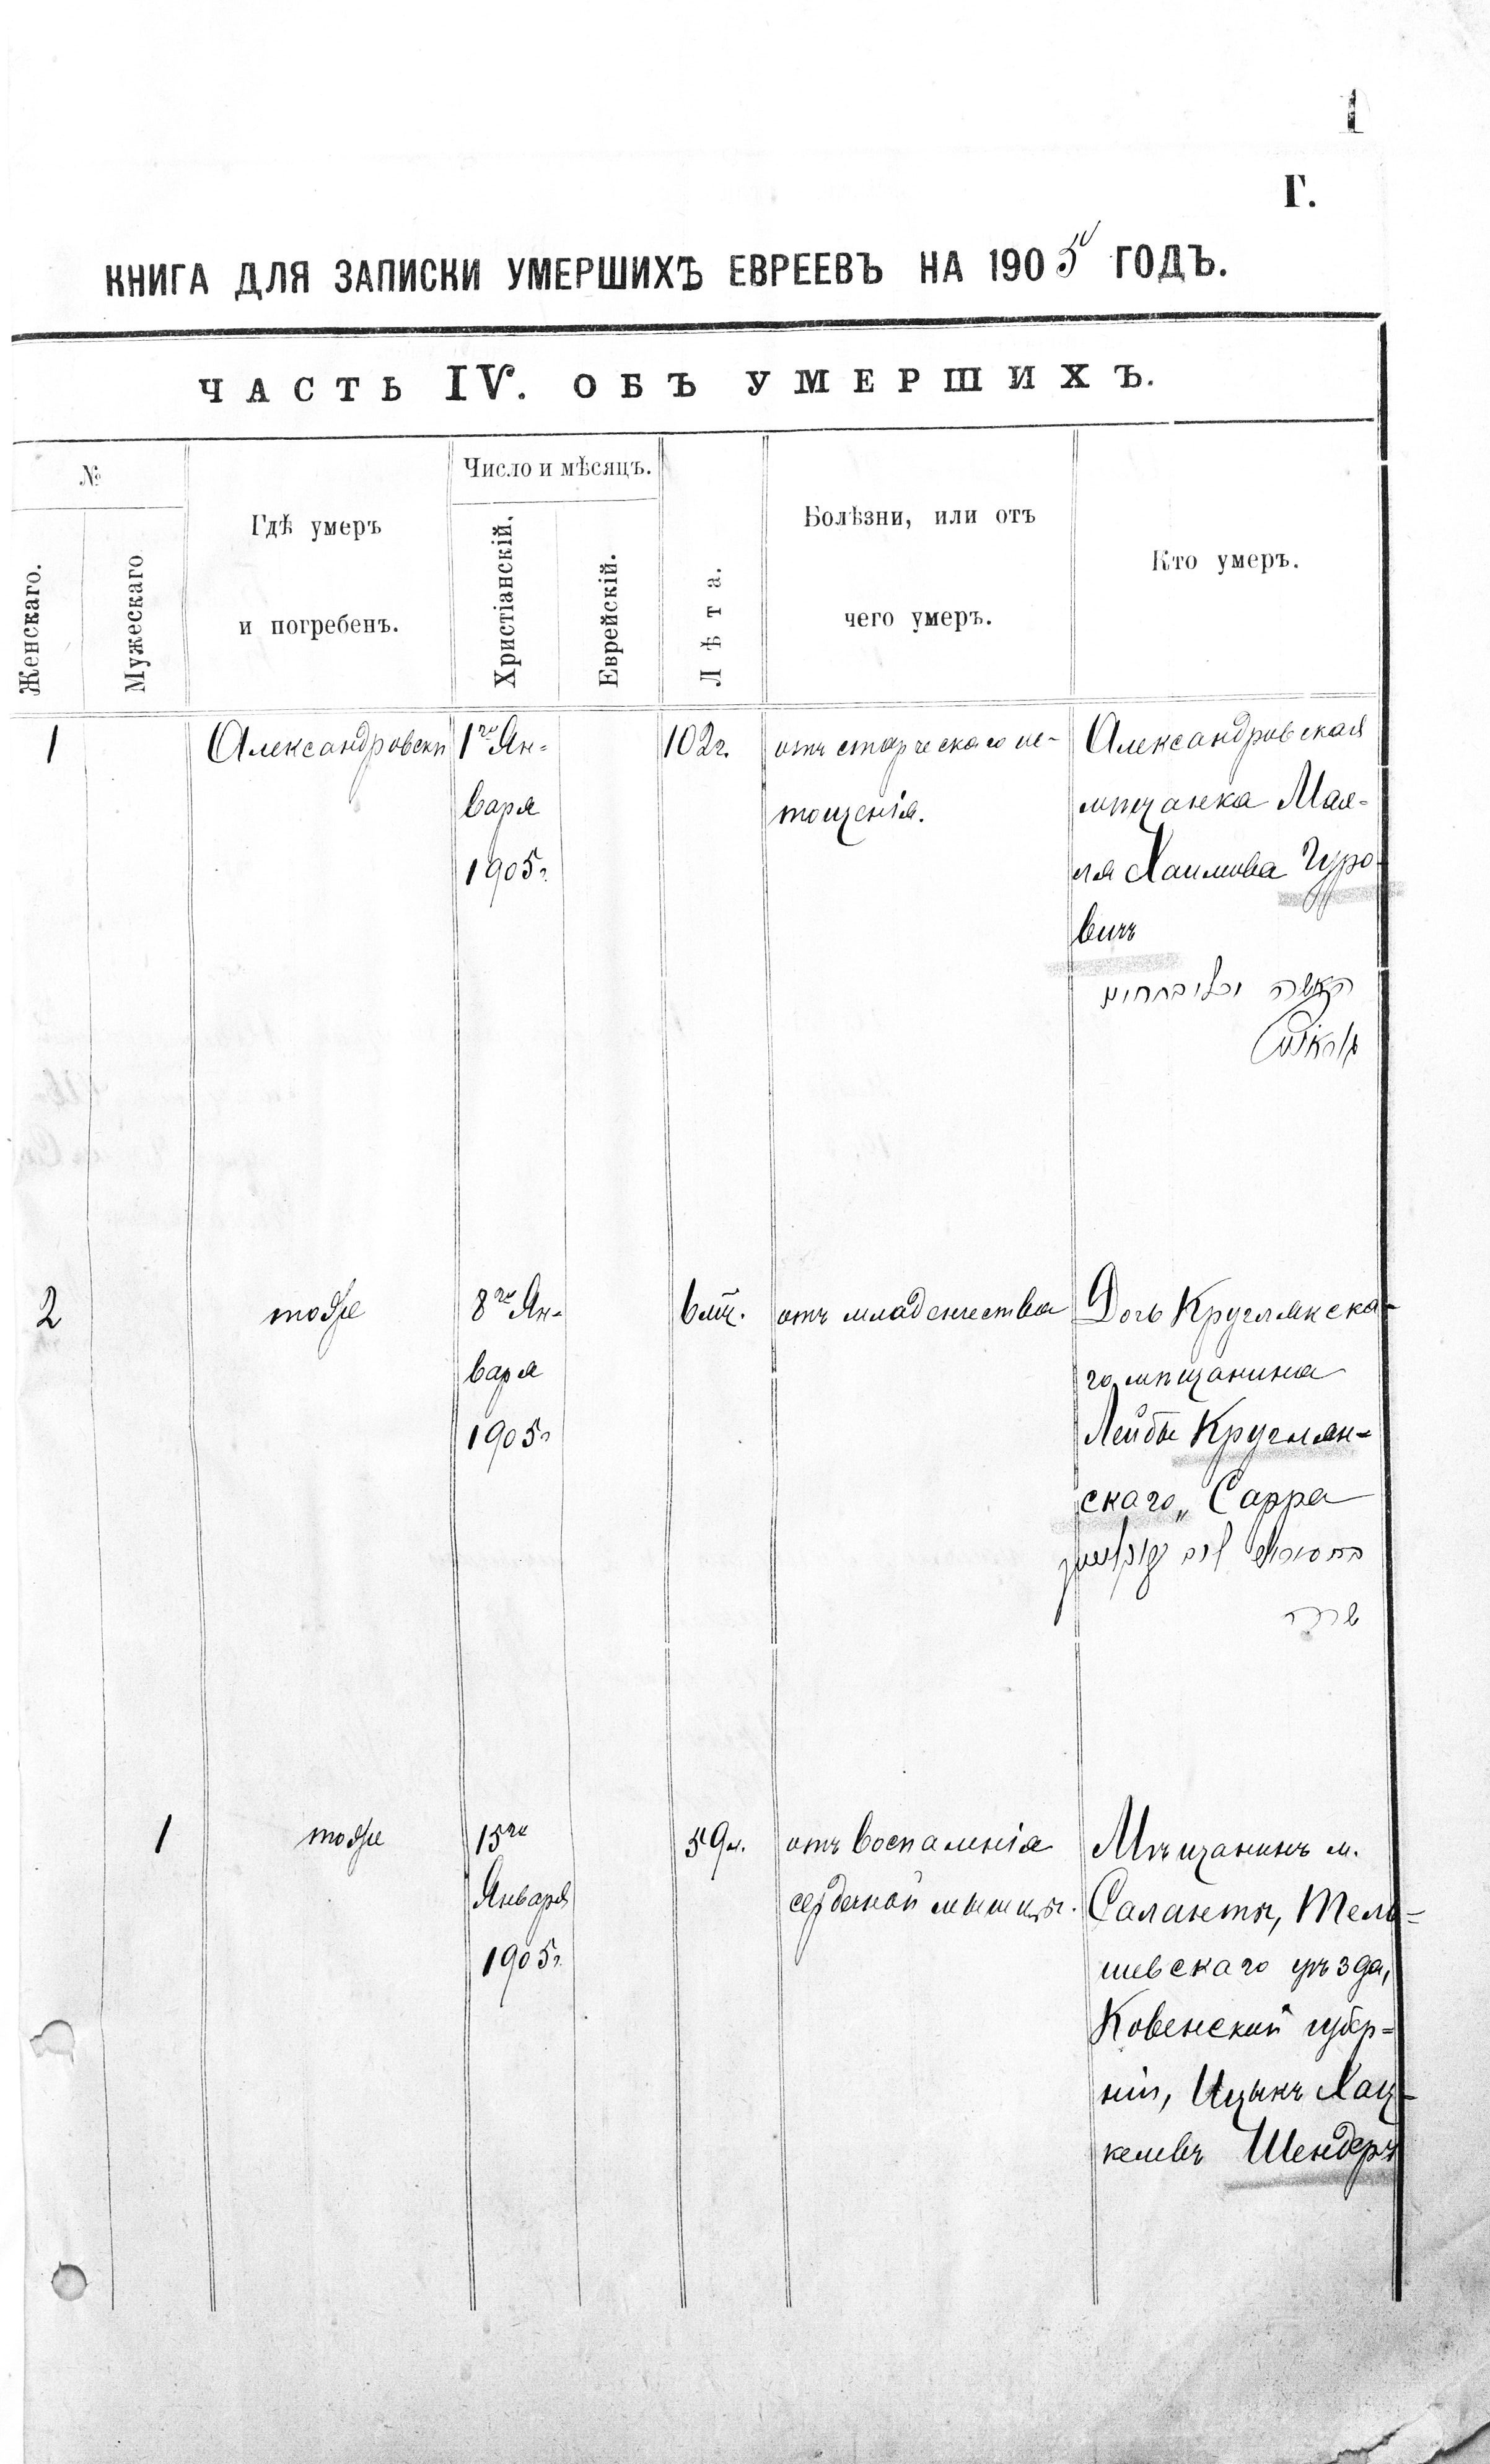 1
Г.
КНИГА ДЛЯ ЗАПИСКИ УМЕРШИХЪ ЕВРЕЕВЪ НА 1905 ГОДЪ.
ЧАСТЬ IV. ОБЪ УМЕРШИХЪ.
№
Женскаго.
Мужескаго
Гдѣ умеръ
и погребенъ.
Число и мѣсяцъ.
Христіанскій.
Еврейскій.
Лѣта.
Болѣзни, или отъ
чего умеръ.
Кто умеръ.
1
Александровскъ
1го Ян-
варя
1905г.
102г.
отъ старческаго ис-
тощенія.
Александровская
мѣщанка Мая-
ля Хаимова Гуро-
вичъ
2
тоже
8го Ян-
варя
1905г
6мц.
отъ младенчества
Дочь Круглянска-
го мѣщанина
Лейбы Круглян-
скаго „ Сарра
שרה
1
тоже
15го
Января
1905г.
59л.
отъ воспаленія
сердечной мышцы.
Мѣщанинъ м.
Саланты, Тель-
шевскаго уѣзда,
Ковенской губер-
ніи, Ицыкъ Хац-
келевъ Шендеръ